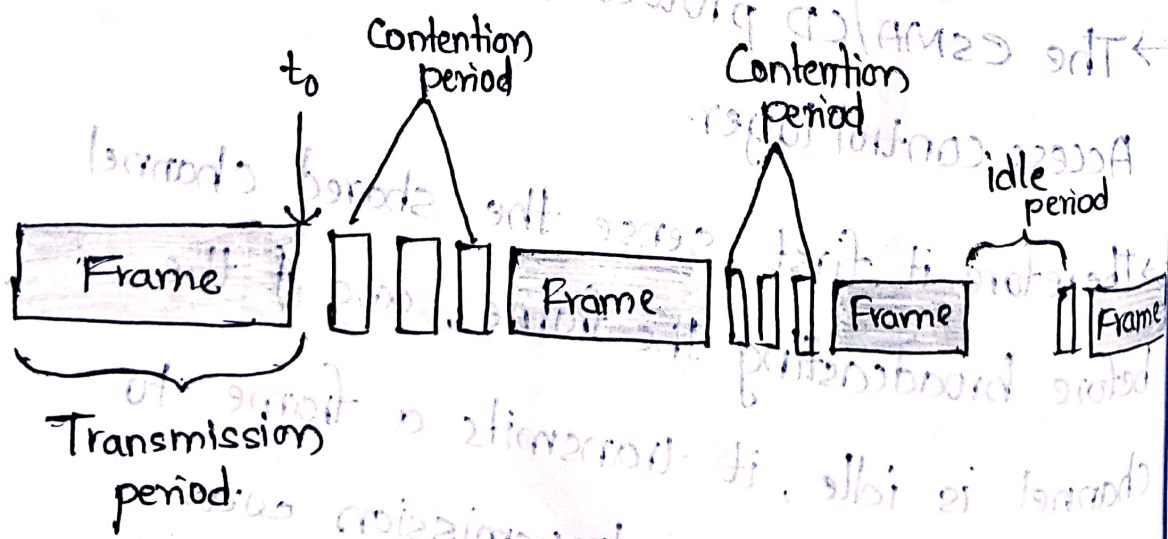 t₀
Contention
period
Contention
period
idle
period
Frame
Frame
Frame
Frame
Transmission
period.